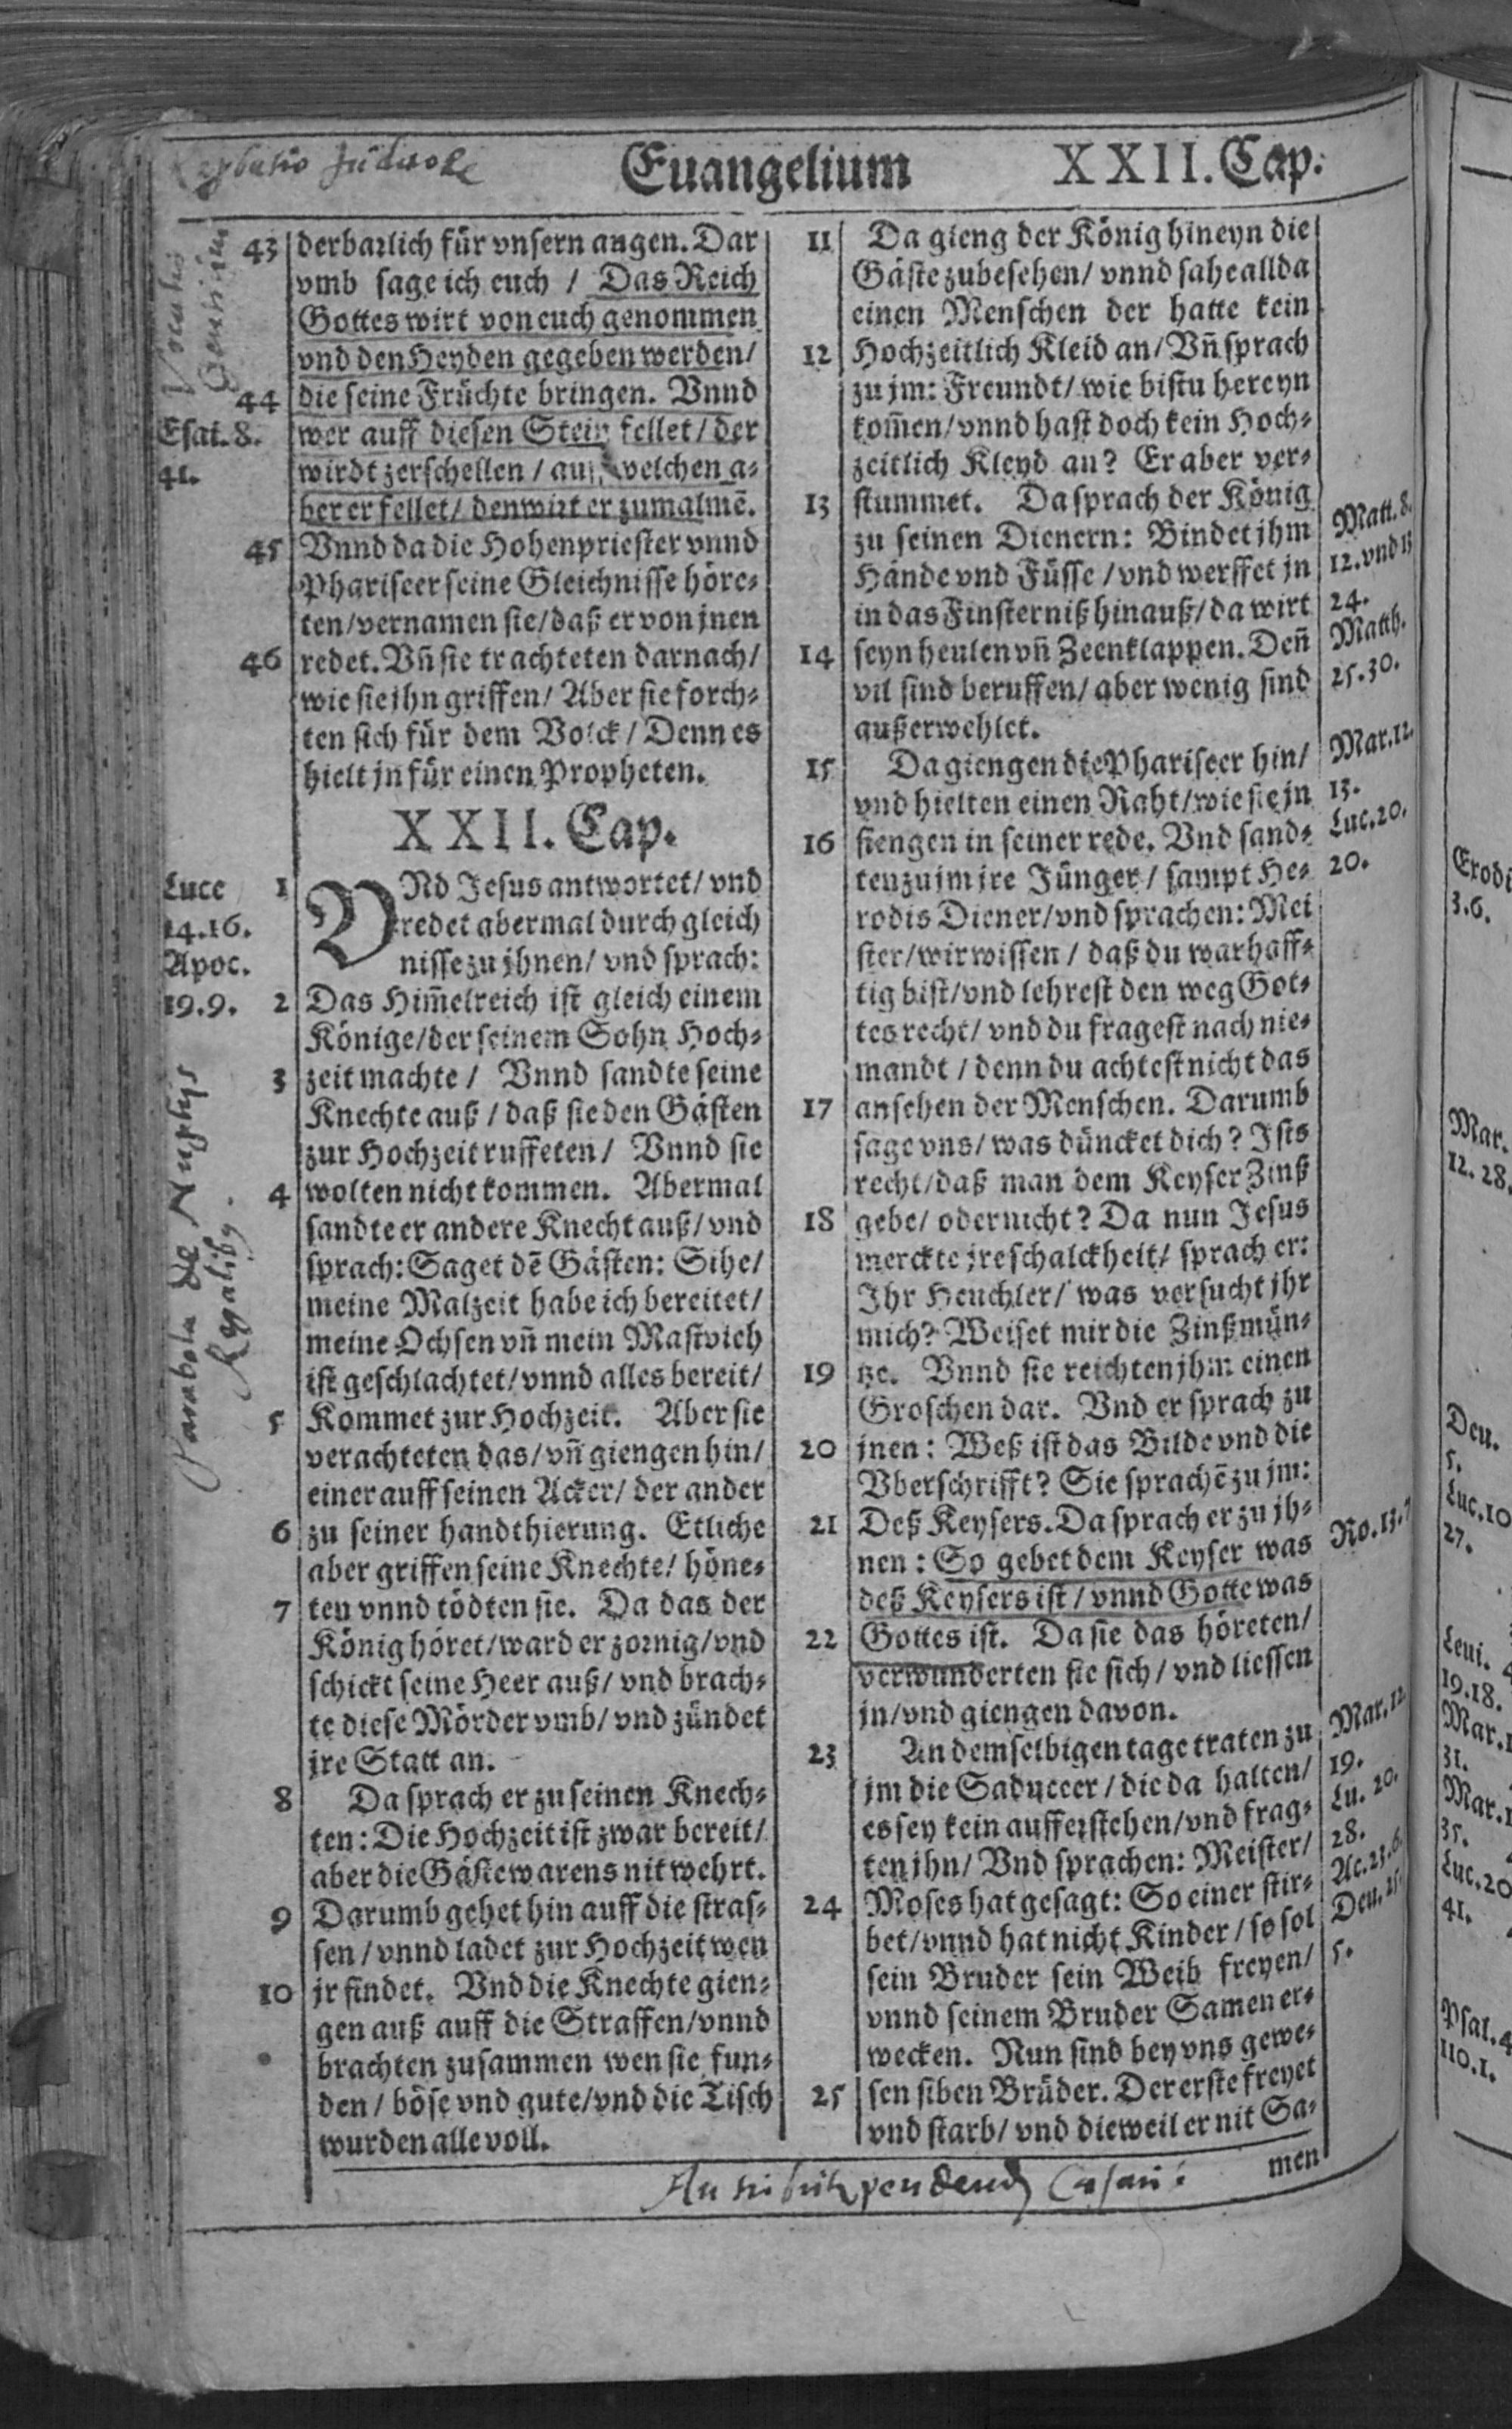 Euangelium
XXII. Cap.
43 derbarlich für vnsern augen. Dar
vmb sage ich euch / Das Reich
Gottes wirt von euch genommen
vnd den Heyden gegeben werden/
44 die seine Früchte bringen. Vnnd
Esai. 8. wer auff diesen Stein fellet / der
41. wirdt zerschellen / auff welchen a⸗
ber er fellet / den wirt er zumalmē.
45 Vnnd da die Hohenpriester vnnd
Phariseer seine Gleichnisse höre⸗
ten/vernamen sie/daß er von jnen
46 redet. Vn̄ sie trachteten darnach/
wie sie jhn griffen/ Aber sie forch⸗
ten sich für dem Volck / Denn es
hielt jn für einen Propheten.
XXII. Cap.
Luce 1 VNd Jesus antwortet/ vnd
14.16. redet abermal durch gleich
Apoc. nisse zu jhnen/ vnd sprach:
19.9. 2 Das Him̄elreich ist gleich einem
Könige/der seinem Sohn Hoch⸗
3 zeit machte / Vnnd sandte seine
Knechte auß / daß sie den Gästen
zur Hochzeit ruffeten / Vnnd sie
4 wolten nicht kommen. Abermal
sandte er andere Knecht auß/ vnd
sprach: Saget dē Gästen: Sihe/
meine Malzeit habe ich bereitet/
meine Ochsen vn̄ mein Mastvieh
ist geschlachtet/ vnnd alles bereit/
5 Kommet zur Hochzeit. Aber sie
verachteten das/ vn̄ giengen hin/
einer auff seinen Acker/ der ander
6 zu seiner handthierung. Etliche
aber griffen seine Knechte/ höne⸗
7 ten vnnd tödten sie. Da das der
König höret/ward er zornig/vnd
schickt seine Heer auß/ vnd brach⸗
te diese Mörder vmb/ vnd zündet
jre Statt an.
8 Da sprach er zu seinen Knech⸗
ten: Die Hochzeit ist zwar bereit/
aber die Gäste warens nit wehrt.
9 Darumb gehet hin auff die stras⸗
sen / vnnd ladet zur Hochzeit wen
10 jr findet. Vnd die Knechte gien⸗
gen auß auff die Strassen/vnnd
brachten zusammen wen sie fun⸗
den / böse vnd gute/vnd die Tisch
wurden alle voll.
Parabola de Nuptijs
Regalibꝫ.
11 Da gieng der König hineyn die
Gäste zubesehen/ vnnd sahe allda
einen Menschen der hatte kein
12 Hochzeitlich Kleid an/ Vn̄ sprach
zu jm: Freundt/ wie bistu hereyn
kom̄en/vnnd hast doch kein Hoch⸗
zeitlich Kleyd an? Er aber ver⸗
13 stummet. Da sprach der König Matt. 8.
zu seinen Dienern: Bindet jhm 12. vnd 13
Hände vnd Füsse / vnd werffet jn 24.
in das Finsterniß hinauß/ da wirt Matth.
14 seyn heulen vn̄ Zeenklappen. Den̄ 25.30.
vil sind beruffen/ aber wenig sind
außerwehlet.
15 Da giengen die Phariseer hin/ Mar. 12.
vnd hielten einen Raht/wie sie jn 13.
16 fiengen in seiner rede. Vnd sand⸗ Luc. 20.
ten zu jm jre Jünger / sampt He⸗ 20.
rodis Diener/vnd sprachen: Mei
ster/wir wissen / daß du warhaff⸗
tig bist/vnd lehrest den weg Got⸗
tes recht/ vnd du fragest nach nie⸗
mandt / denn du achtest nicht das
17 ansehen der Menschen. Darumb
sage vns/ was düncket dich? Ists
recht/daß man dem Keyser Zinß
18 gebe/ oder nicht? Da nun Jesus
merckte jre schalckheit/ sprach er:
Ihr Heuchler/ was versucht jhr
mich? Weiset mir die Zinßmün⸗
19 tze. Vnnd sie reichten jhm einen
Groschen dar. Vnd er sprach zu
20 jnen: Weß ist das Bilde vnd die
Vberschrifft? Sie sprachē zu jm:
21 Deß Keysers. Da sprach er zu jh⸗ Ro. 13.7
nen: So gebet dem Keyser was
deß Keysers ist / vnnd Gotte was
22 Gottes ist. Da sie das höreten/
verwunderten sie sich / vnd liessen
jn/vnd giengen davon.
23 An demselbigen tage traten zu Mar. 12.
jm die Saduceer / die da halten/ 19.
es sey kein aufferstehen/vnd frag⸗ Lu. 20.
ten jhn/ Vnd sprachen: Meister/ 28.
24 Moses hat gesagt: So einer stir⸗ Ac. 23.6.
bet/vnnd hat nicht Kinder / so sol Deu. 25.
sein Bruder sein Weib freyen/ 5.
vnnd seinem Bruder Samen er⸗
wecken. Nun sind bey vns gewe⸗
25 sen siben Brüder. Der erste freyet
vnd starb/ vnd dieweil er nit Sa⸗
men
Exodi
3.6.
Mar.
12. 28.
Deu.
5.
Luc. 10
27.
Leui.
19.18.
Mar. 1
31.
Mar. 1
35.
Luc. 20
41.
Psal.
110.1.